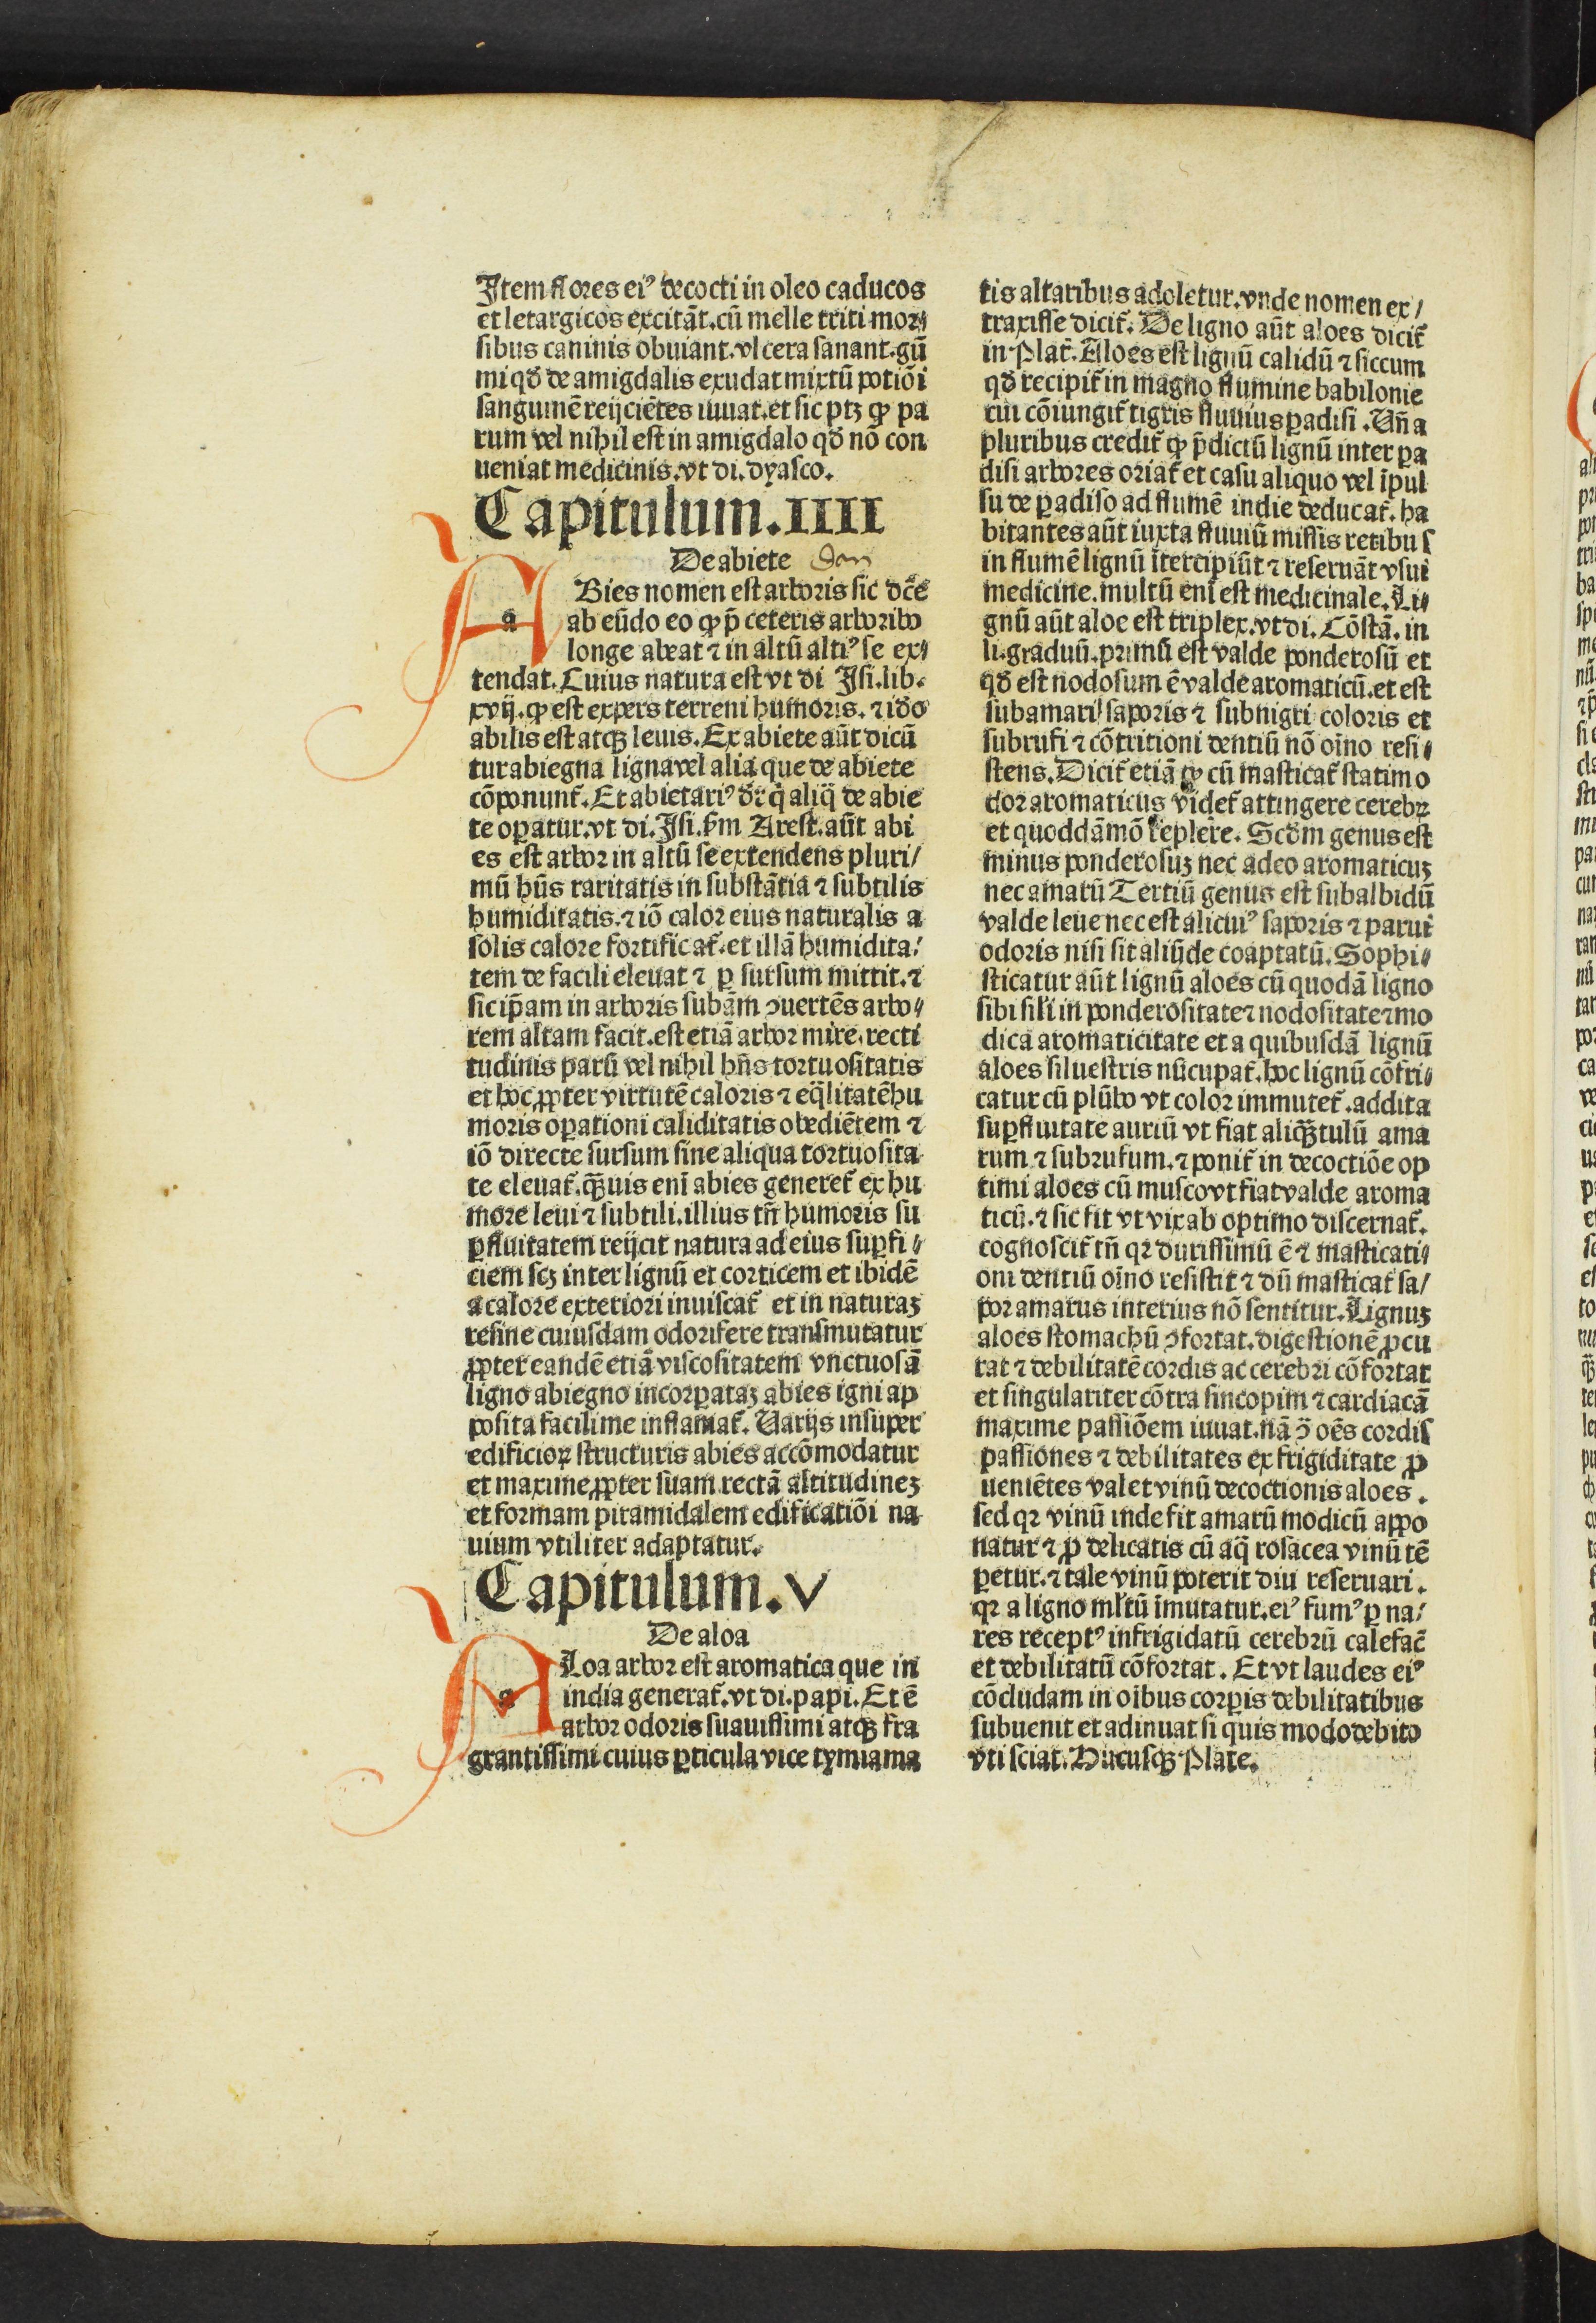 Item flores eiꝰ decocti in oleo caducos
et letargicos excitãt.cũ melle triti mor⸗
sibus caninis obuiant.vlcera sanant.gũ
mi qđ de amigdalis exudat mixtũ potiõi
sanguinẽ reijciẽtes iuuat.et sic ptꝫ ꝙ pa
rum vel nihil est in amigdalo qđ nõ con
ueniat medicinis.vt di.dyasco.
Capitulum.IIII
De abiete
a
Bies nomen est arboris sic dc̃e
ab eũdo eo ꝙ p̃ ceteris arboribꝰ
longe abeat ⁊ in altũ altiꝰ se ex⸗
tendat.Cuius natura est vt di Isi.lib.
xvij.ꝙ est expers terreni humoris.⁊ iđo
abilis est atqꝫ leuis.Ex abiete aũt dicũ
tur abiegna ligna vel alia que de abiete
cõponunt̃.Et abietariꝰ dr̃ q̃ aliq̃ de abie
te oꝑatur.vt di.Isi.ẜm Arest.aũt abi
es est arbor in altũ se extendens pluri/
mũ hñs raritatis in substãtia ⁊ subtilis
humiditatis.⁊ iõ calor eius naturalis a
solis calore fortificat̃.et illã humidita/
tem de facili eleuat ⁊ ꝑ sursum mittit.⁊
sic ip̃am in arboris subãm ꝯuertẽs arbo⸗
rem altam facit.est etiã arbor mire recti
tudinis parũ vel nihil hñs tortuositatis
et hoc ꝓpter virtutẽ caloris ⁊ eq̃litatẽ hu
moris oꝑationi caliditatis obediẽtem ⁊
iõ directe sursum sine aliqua tortuosita
te eleuat̃.qꝫ̃uis eni abies generet̃ ex hu
more leui ⁊ subtili.illius tñ humoris su
ꝑfluitatem reijcit natura ad eius suꝑfi⸗
ciem scꝫ inter lignũ et corticem et ibidẽ
a calore exteriori inuiscat̃ et in naturaꝫ
resine cuiusdam odorifere transmutatur
ꝓpter eandẽ etiã viscositatem vnctuosã
ligno abiegno incorꝑataꝫ abies igni ap
posita facilime inflamat̃.Varijs insuper
edificioꝝ structuris abies accõmodatur
et maxime ꝓpter suam rectã altitudineꝫ
et formam piramidalem edificatiõi na
uium vtiliter adaptatur.
Capitulum.V
De aloa
a
Loa arbor est aromatica que in
india generat̃.vt di.papi.Et ẽ
arbor odoris suauissimi atqꝫ fra
grantissimi cuius ꝑticula vice tymiama
tis altaribus adoletur.vnde nomen ex/
traxisse dicit̃.De ligno aũt aloes dicit̃
in Plat̃.Aloes est lignũ calidũ ⁊ siccum
qđ recipit̃ in magno flumine babilonie
cui cõiungit̃ tigris fluuius ꝑadisi.Vñ a
pluribus credit̃ ꝙ p̃dictũ lignũ inter ꝑa
disi arbores oriat̃ et casu aliquo vel ĩpul
su de ꝑadiso ad flumẽ indie deducat̃.ha
bitantes aũt iuxta fluuiũ missis retibus
in flumẽ lignũ ĩtercipiũt ⁊ reseruãt vsui
medicine.multũ enĩ est medicinale.Li⸗
gnũ aũt aloe est triplex.vt di.Cõstã.in
li.graduũ.primũ est valde ponderosũ et
qđ est nodosum ẽ valde aromaticũ.et est
subamari saporis ⁊ subnigri coloris et
subrufi ⁊ cõtritioni dentiũ nõ oĩno resi⸗
stens.Dicit̃ etiã ꝙ cũ masticat̃ statim o
dor aromaticus videt̃ attingere cerebrꝫ
et quoddãmõ replere.Scđm genus est
minus ponderosuꝫ nec adeo aromaticuꝫ
nec amarũ Tertiũ genus est subalbidũ
valde leue nec est alicuiꝰ saporis ⁊ parui
odoris nisi sit aliũde coaptatũ.Sophi⸗
sticatur aũt lignũ aloes cũ quodã ligno
sibi sili in ponderositate⁊ nodositate⁊mo
dica aromaticitate et a quibusdã lignũ
aloes siluestris nũcupat̃.hoc lignũ cõfri⸗
catur cũ plũbo vt color immutet̃.addita
suꝑfluitate auriũ vt fiat aliqꝫ̃tulũ ama
rum ⁊ subrufum.⁊ ponit̃ in decoctiõe op
timi aloes cũ musco vt fiat valde aroma
ticũ.⁊ sic fit vt vix ab optimo discernat̃.
cognoscit̃ tñ qꝛ durissimũ ẽ ⁊ masticati⸗
oni dentiũ oĩno resistit ⁊ dũ masticat̃ sa/
por amarus interius nõ sentitur.Lignuꝫ
aloes stomachũ ꝯfortat.digestionẽ ꝓcu
rat ⁊ debilitatẽ cordis ac cerebri cõfortat
et singulariter cõtra sincopim ⁊ cardiacã
maxime passiõem iuuat.nã ꝯ̃ oẽs cordis
passiones ⁊ debilitates ex frigiditate ꝓ
ueniẽtes valet vinũ decoctionis aloes.
sed qꝛ vinũ inde fit amarũ modicũ appo
natur ⁊ ꝓ delicatis cũ aq̃ rosacea vinũ tẽ
ꝑetur.⁊ tale vinũ poterit diu reseruari.
qꝛ a ligno mĺtũ ĩmutatur.eiꝰ fumꝰ ꝑ na/
res receptꝰ infrigidatũ cerebrũ calefac̃
et debilitatũ cõfortat.Et vt laudes eiꝰ
cõcludam in oĩbus corꝑis debilitatibus
subuenit et adiuuat si quis modo debito
vti sciat.Hucusqꝫ Plate.